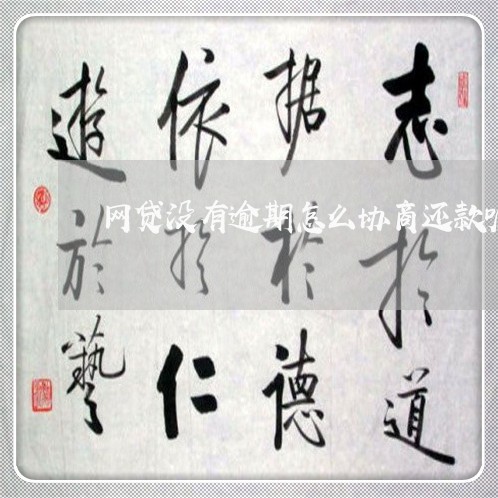 志於道
据於德
依於仁
遊於藝
网贷没有逾期怎么协商还款